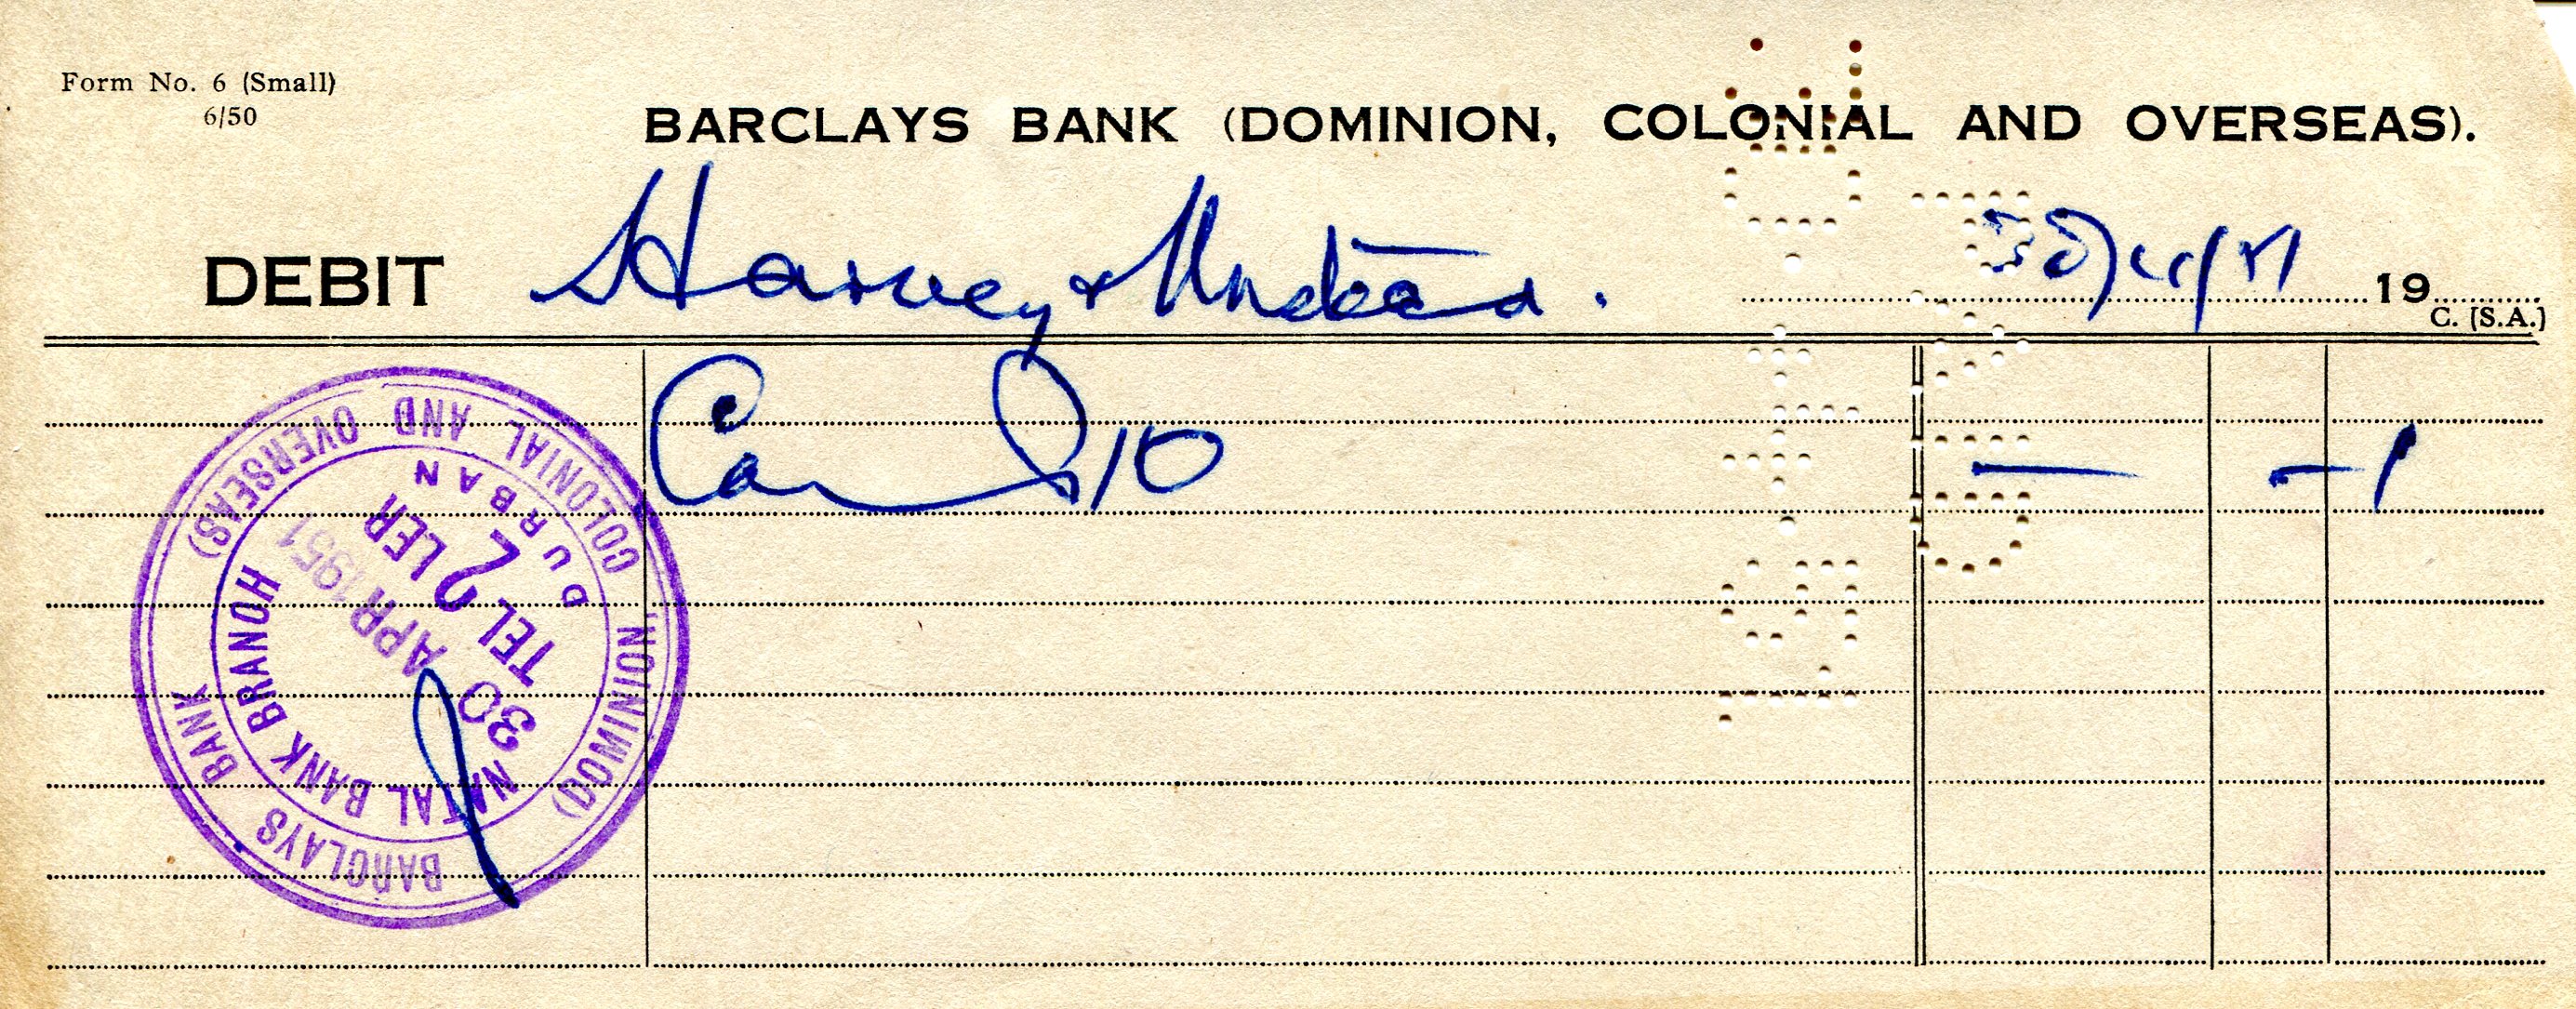 Form No. 6 (Small)
6/50
BARCLAYS BANK (DOMINION, COLONIAL AND OVERSEAS).
DEBIT Harvey &
30/4/51 19
C. [S.A.]
10 — - 1
BARCLAYS BANK (DOMINION, COLONIAL AND OVERSEAS)
NATAL BANK BRANCH DURBAN
30 APR 1951
TELLER
2